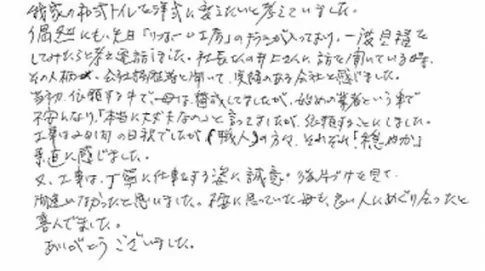 我家の和式トイレを洋式に変えたいと考えていました。
偶然にも、先日「リフォーム工房」のチラシが入っており、一度見積を
してみたらと考え電話しました。社長さんの井上さんに話を聞いている時、
その人柄や、会社 と聞いて、実績のある会社と感じました。
当初、依頼する事で、母は していましたが、始めての業者という事で
不安になり、「本当に大丈夫なの」と言ってましたが、依頼することにしました。
工事は2日間の日程でしたが(職人)の方々、それぞれ「穏やか」
素直に感じました。
又、工事は、丁寧に仕事をする姿に誠意。後片づけを見て、
間違いなかったと思いました。不安に思っていた母も、良い人にめぐり会ったと
喜んでました。
ありがとうございました。